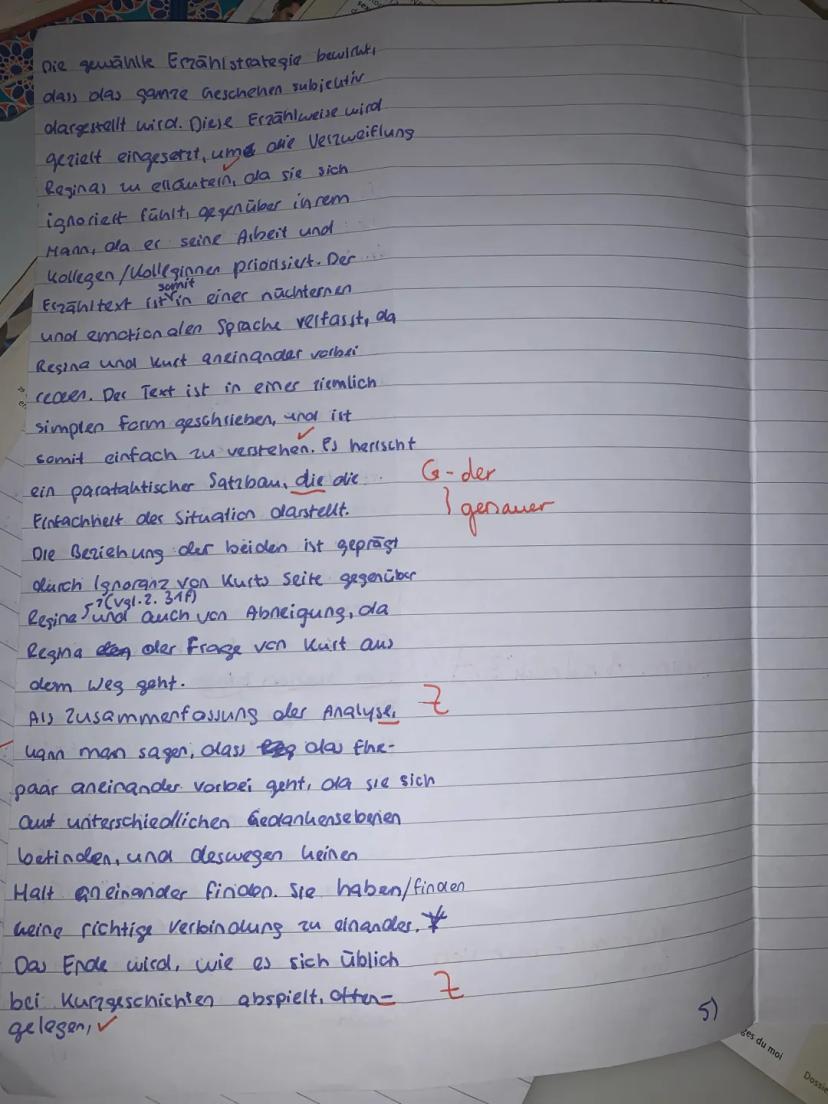 Die gewählte Erzählstrategie bewirkt,
dass das ganze Geschehen subjektiv
dargestellt wird. Diese Erzählweise wird
gezielt eingesetzt, um die Verzweiflung
Reginas zu erläutern, da sie sich
ignoriert fühlt, gegenüber ihrem
Mann, da er seine Arbeit und
Kollegen/Kolleginnen priorisiert. Der
somit
Erzähltext ist in einer nüchternen
und emotionalen Sprache verfasst, da
Regina und Kurt aneinander vorbei
reden. Der Text ist in einer ziemlich
simplen Form geschrieben, und ist
somit einfach zu verstehen. Es herrscht
ein parataktischer Satzbau, die die G - der
Einfachheit der Situation darstellt. } genauer
Die Beziehung der beiden ist geprägt
durch Ignoranz von Kurts Seite gegenüber
? (vgl. Z. 31f)
Regina und auch von Abneigung, da
Regina der Frage von Kurt aus
dem Weg geht.
Als Zusammenfassung der Analyse, Z
kann man sagen, dass das Ehe-
paar aneinander vorbei geht, da sie sich
auf unterschiedlichen Gedankensebenen
befinden, und deswegen keinen
Halt aneinander finden. Sie haben/finden
keine richtige Verbindung zu einander. *
Das Ende wird, wie es sich üblich
bei Kurzgeschichten abspielt, offen= Z
gelegen,
5)
ges du moi
Dossie